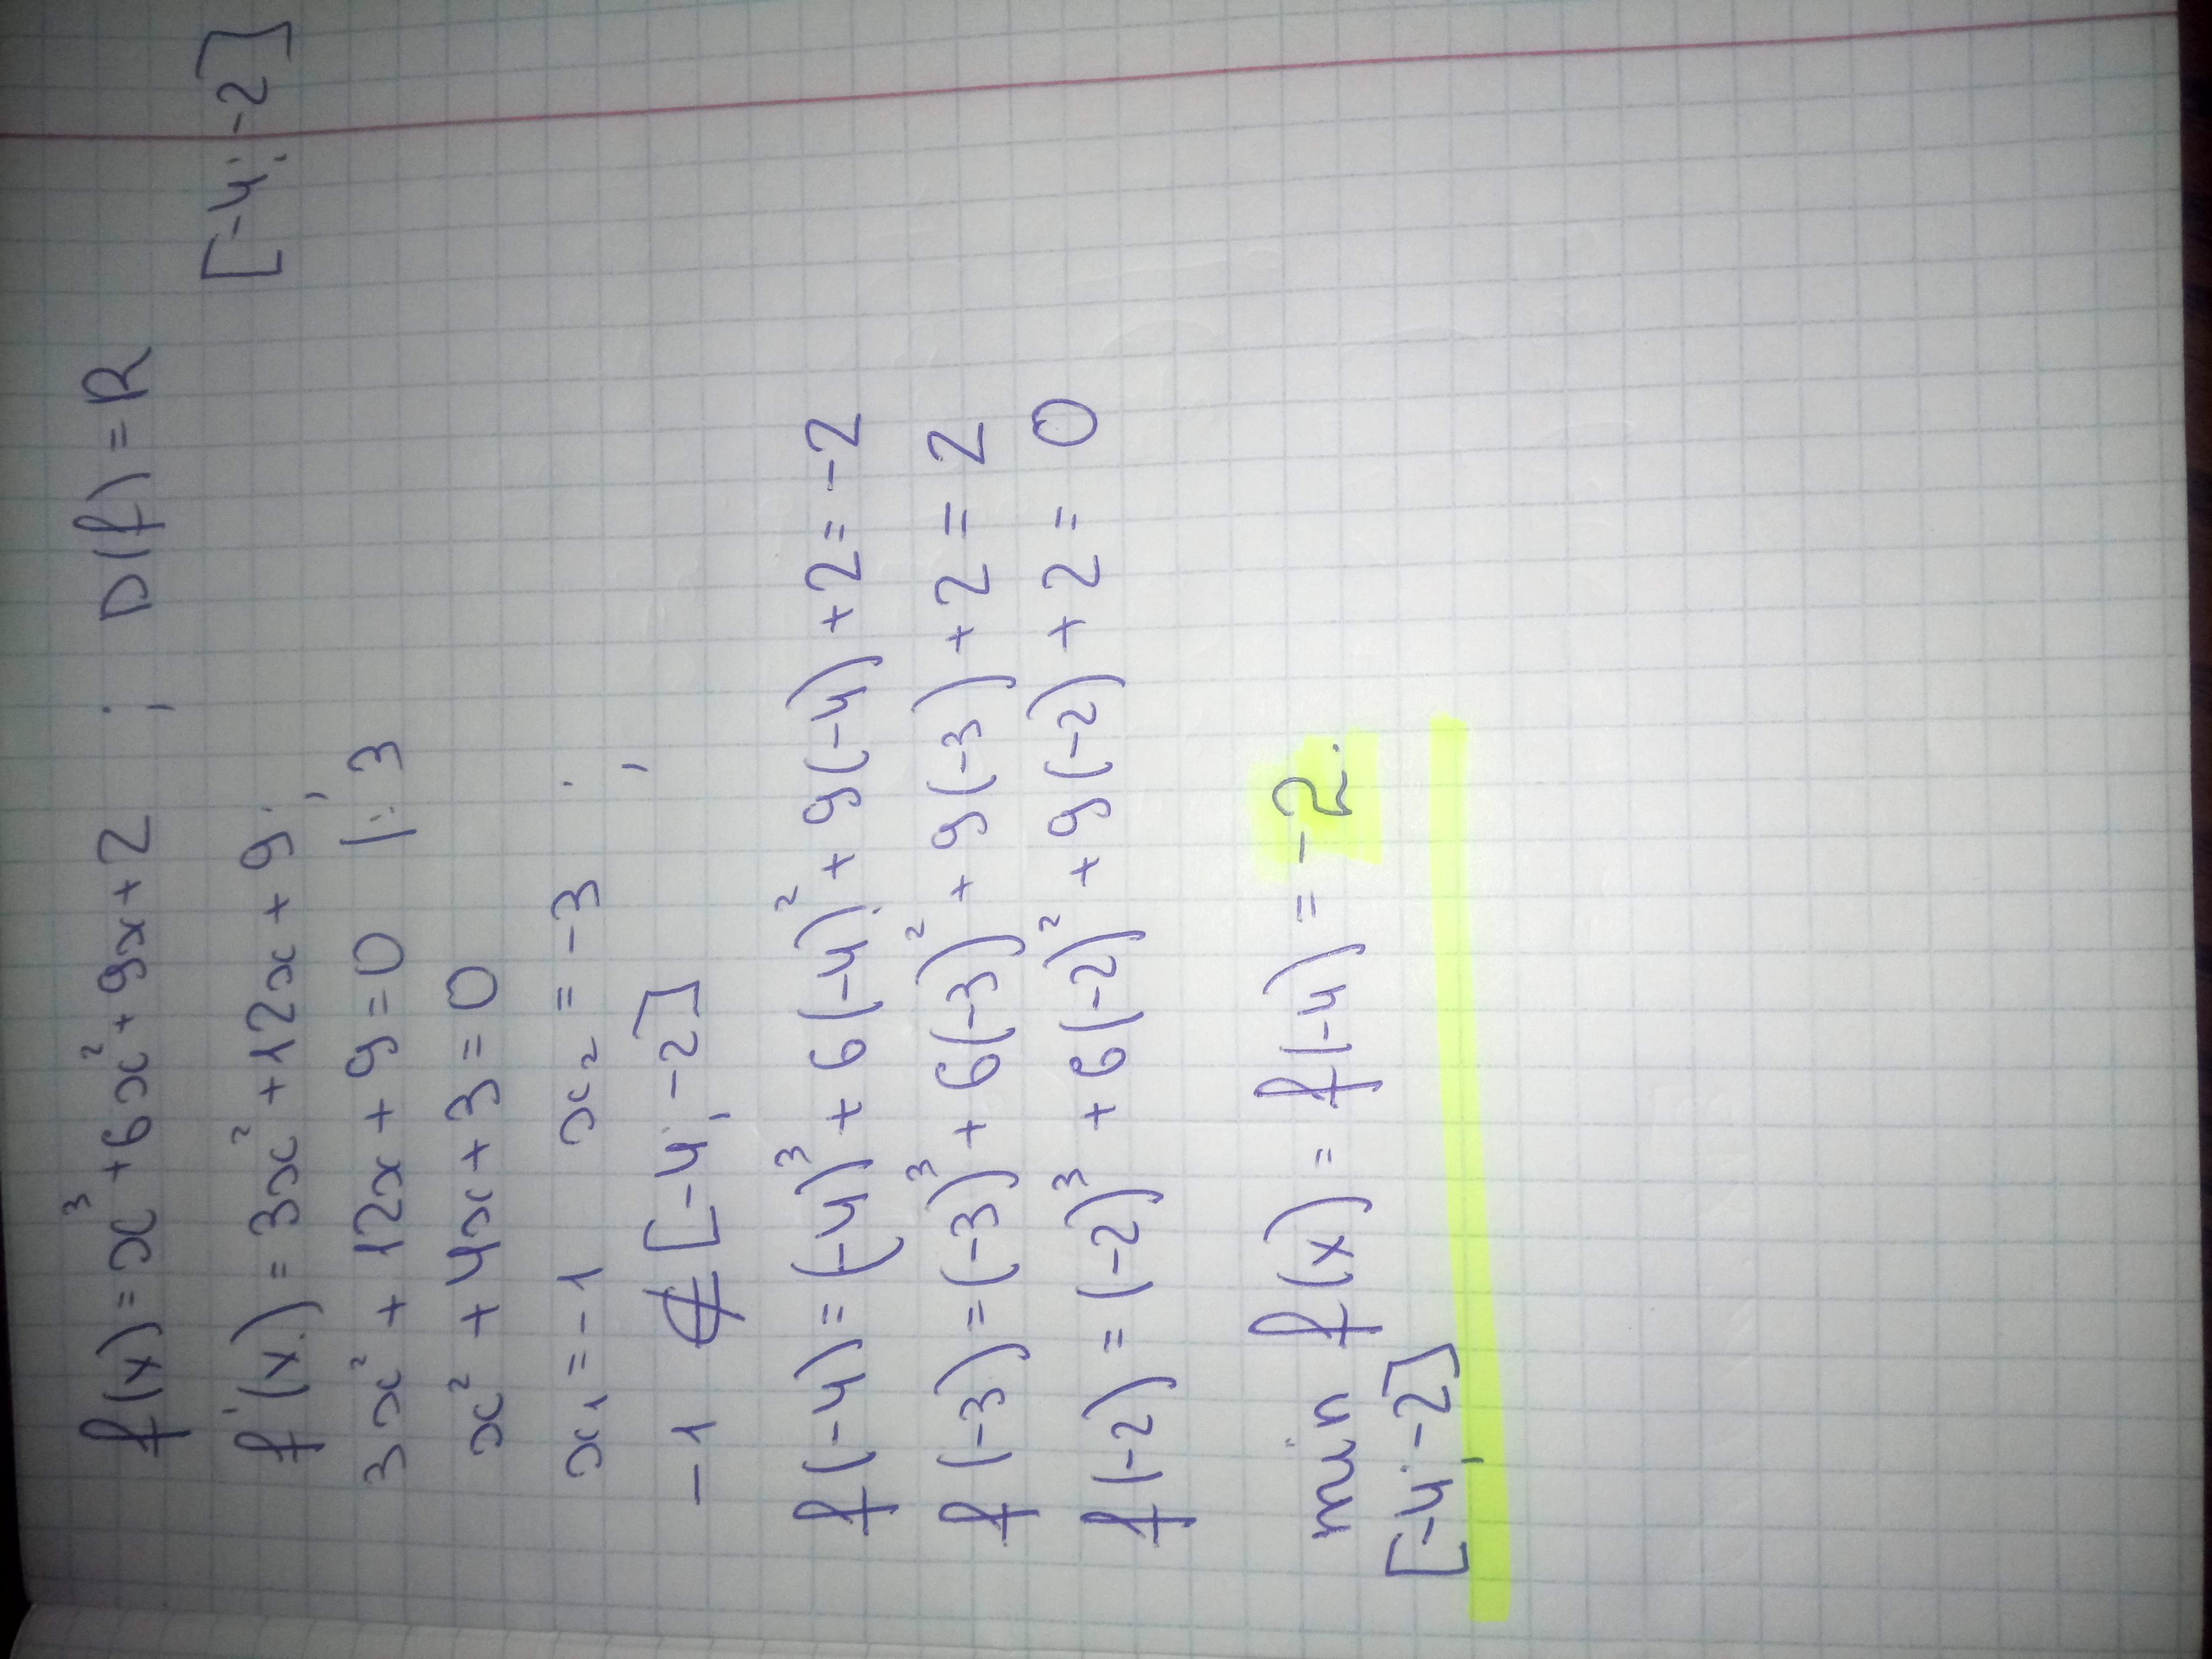 f(x) = x³ + 6x² + 9x + 2 ; D(f) = R
[-4; -2]
f'(x) = 3x² + 12x + 9;
3x² + 12x + 9 = 0 |:3
x² + 4x + 3 = 0
x₁ = -1 x₂ = -3 ;
-1 ∉ [-4; -2]
f(-4) = (-4)³ + 6(-4)² + 9(-4) + 2 = -2
f(-3) = (-3)³ + 6(-3)² + 9(-3) + 2 = 2
f(-2) = (-2)³ + 6(-2)² + 9(-2) + 2 = 0
min f(x) = f(-4) = -2.
[-4; -2]